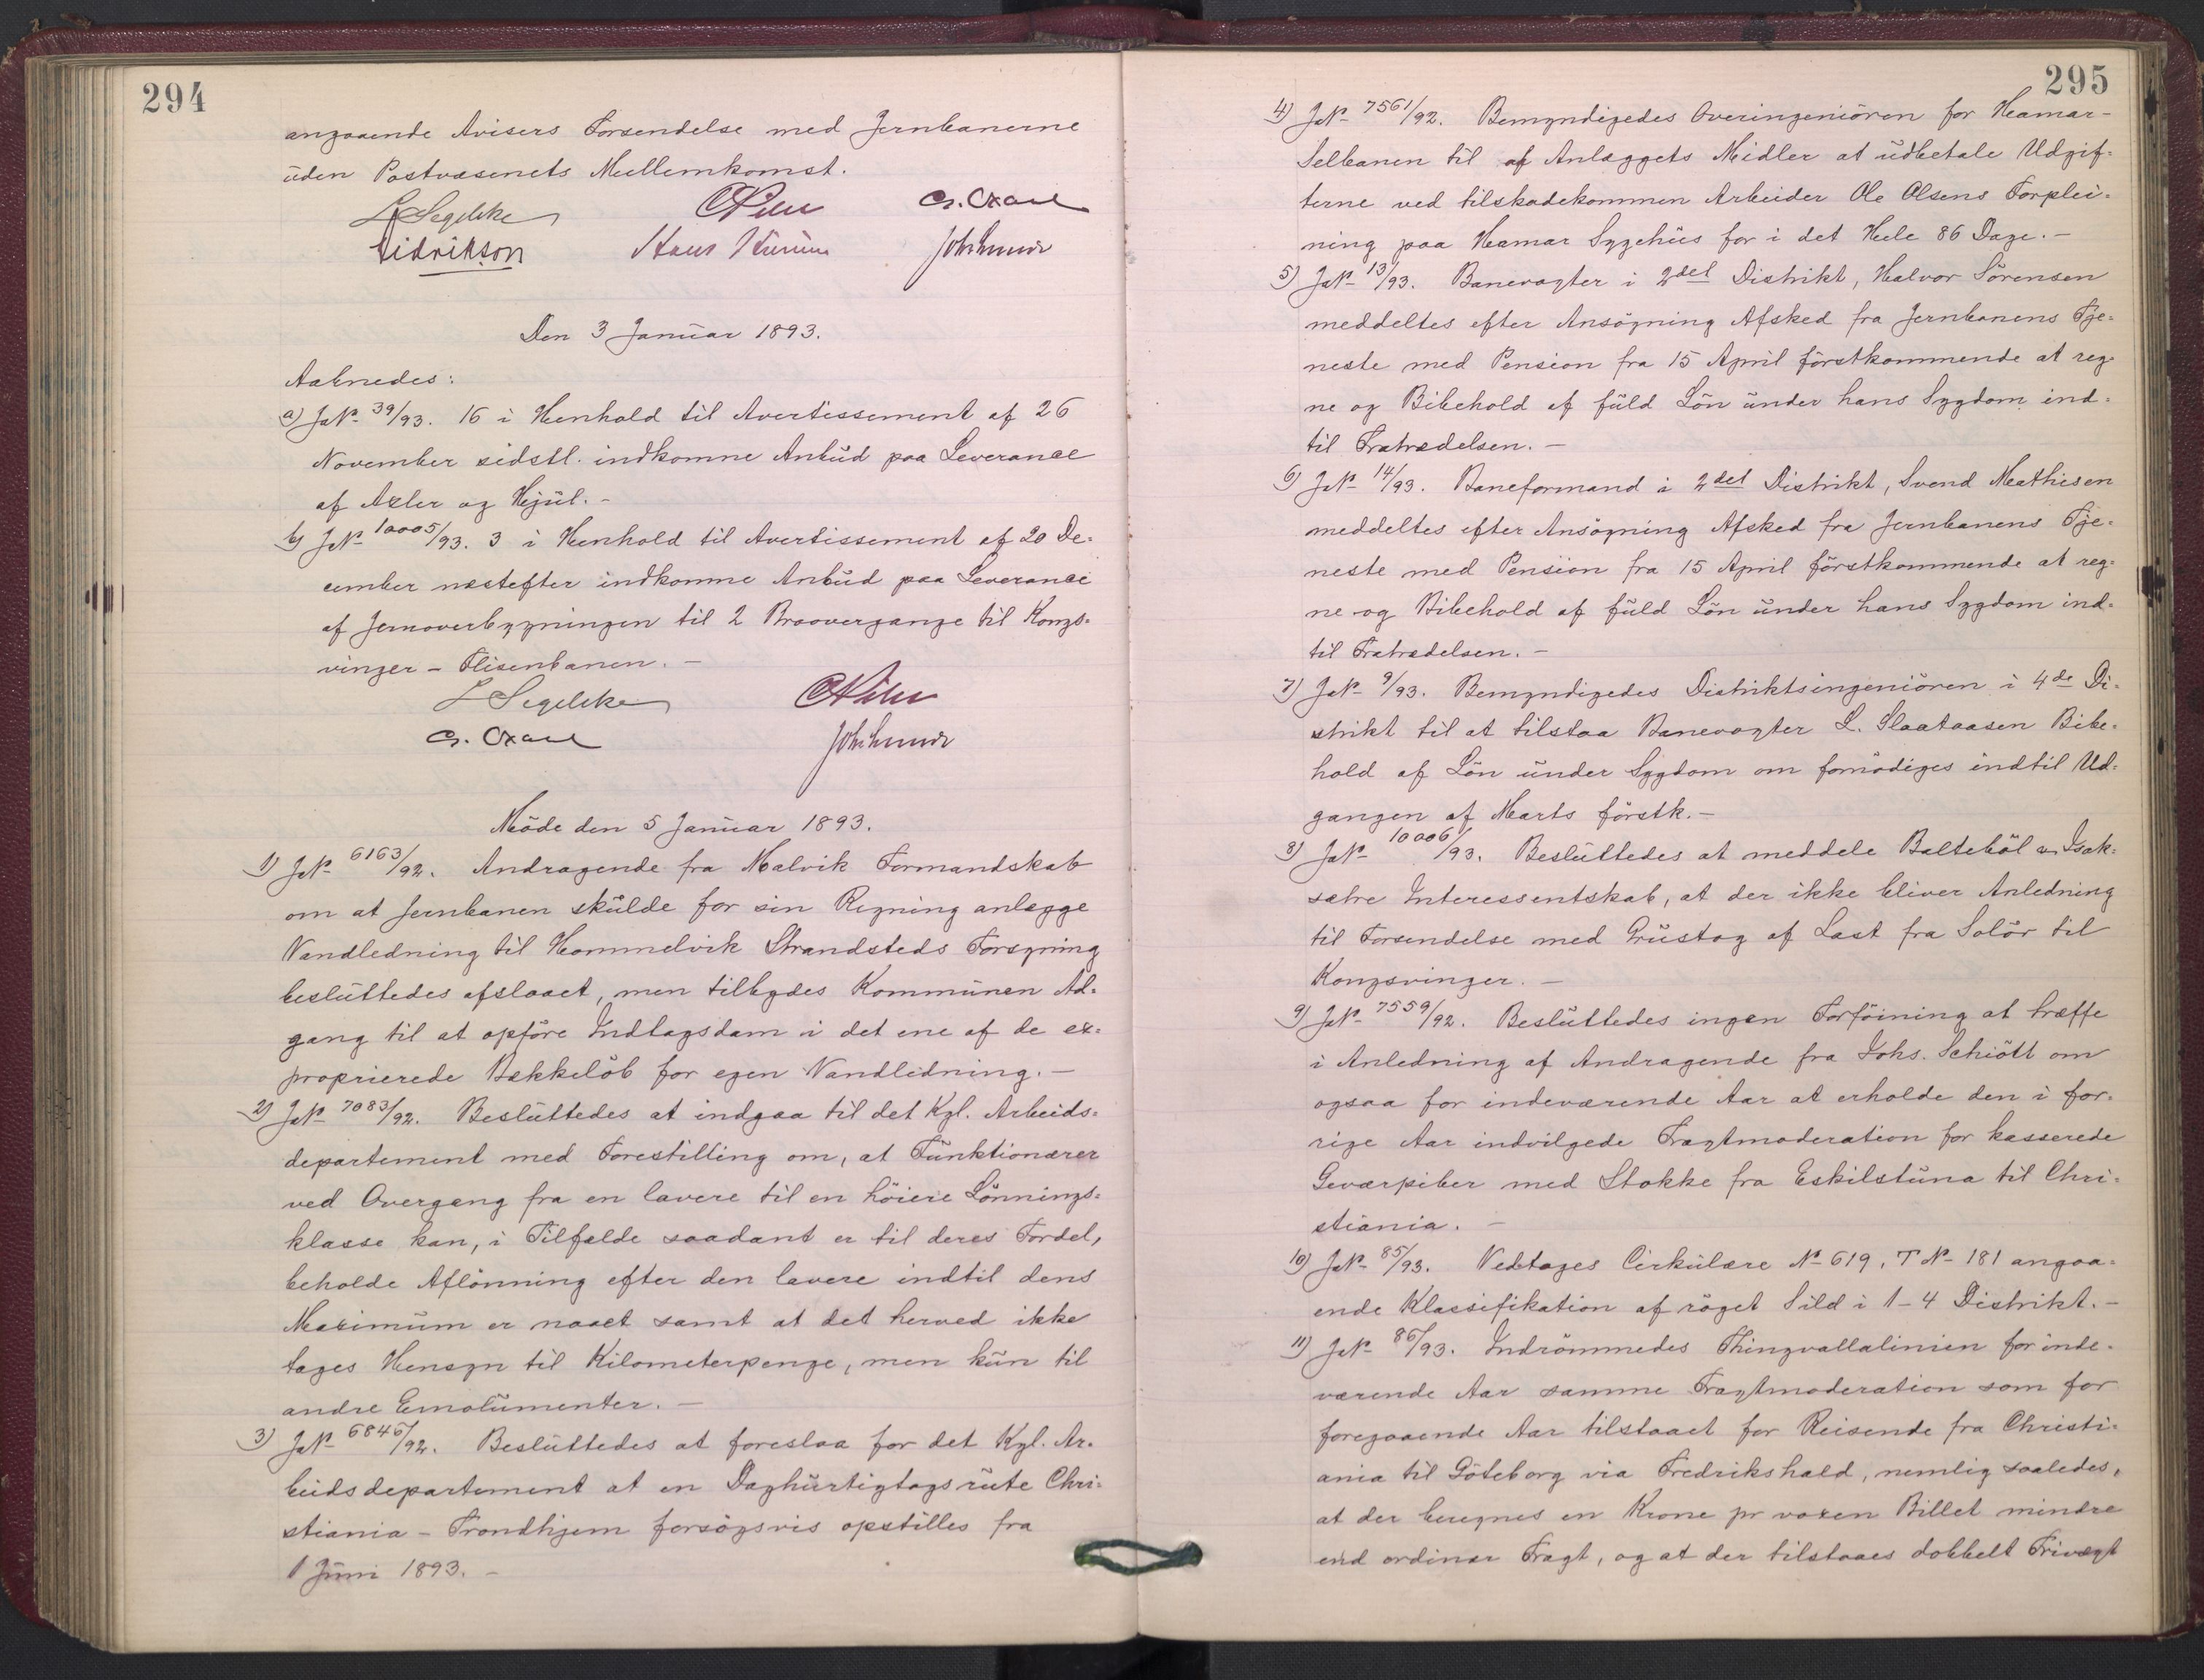 294
angaaende Avisers Forsendelse med Jernbanerne
uden Postvæsenets Mellemkomst.
L Segelcke CPihl G. Oxaal
Didrikson Hans Joh. Lund
Den 3 Januar 1893.
Aabnedes:
a) JNº 39/93. 16 i Henhold til Avertissement af 26
November sidstl. indkomne Anbud paa Leverance
af Axler og Hjul. -
b) JNº 10005/93. 3 i Henhold til Avertissement af 20 De-
cember næstefter indkomne Anbud paa Leverance
af Jernoverbygningen til 2 Broovergange til Kongs-
vinger - Flisenbanen. -
L Segelcke CPihl
G. Oxaal Joh. Lund
Møde den 5 Januar 1893.
1) JNº 6163/92. Andragende fra Malvik Formandskab
om at Jernbanen skulde for sin Regning anlægge
Vandledning til Hommelvik Strandsteds Forsyning
besluttedes afslaaet, men tilbydes Kommunen Ad-
gang til at opføre Indtagsdam i det ene af de ex-
proprierede Bækkeløb for egen Vandledning. -
2) JNº 7083/92. Besluttedes at indgaa til det Kgl. Arbeids-
departement med Forestilling om, at Funktionærer
ved Overgang fra en lavere til en høiere Lønnings-
klasse kan, i Tilfælde saadant er til deres Fordel,
beholde Aflønning efter den lavere indtil dens
Maximum er naaet samt at det herved ikke
tages Hensyn til Kilometerpenge, men kun til
andre Emolumenter. -
3) JNº 6846/92. Besluttedes at foreslaa for det Kgl. Ar-
beidsdepartement at en Daghurtigtogsrute Chri-
stiania - Trondhjem forsøgsvis opstilles fra
1 Juni 1893. -
295
4) JNº 7561/92. Bemyndigedes Overingeniøren for Hamar-
Selbanen til af Anlæggets Midler at udbetale Udgif-
terne ved tilskadekommen Arbeider Ole Olsens Forplei-
ning paa Hamar Sygehus for i det Hele 86 Dage. -
5) JNº 13/93. Banevogter i 2det Distrikt, Halvor Sørensen
meddeltes efter Ansøgning Afsked fra Jernbanens Tje-
neste med Pension fra 15 April førstkommende at reg-
ne og Bibehold af fuld Løn under hans Sygdom ind-
til Fratrædelsen. -
6) JNº 14/93. Baneformand i 2det Distrikt, Svend Mathisen
meddeltes efter Ansøgning Afsked fra Jernbanens Tje-
neste med Pension fra 15 April førstkommende at reg-
ne og Bibehold af fuld Løn under hans Sygdom ind-
til Fratrædelsen. -
7) JNº 9/93. Bemyndigedes Distriktsingeniøren i 4de Di-
strikt til at tilstaa Banevogter L. Slaataasen Bibe-
hold af Løn under Sygdom om fornødiges indtil Ud-
gangen af Marts førstk. -
8) JNº 10006/93. Besluttedes at meddele Baltebøl & Isak-
sætre Interessentskab, at der ikke bliver Anledning
til Forsendelse med Grustog af Last fra Solør til
Kongsvinger. -
9) JNº 7559/92. Besluttedes ingen Forføining at træffe
i Anledning af Andragende fra Johs. Schiött om
ogsaa for indeværende Aar at erholde den i for-
rige Aar indvilgede Fragtmoderation for kasserede
Geværpiber med Stokke fra Eskilstuna til Chri-
stiania. -
10) JNº 85/93. Vedtoges Cirkulære Nº 619, T Nº 181 angaa-
ende Klassifikation af røget Sild i 1-4 Distrikt. -
11) JNº 86/93. Indrømmedes Thingvallalinien for inde-
værende Aar samme Fragtmoderation som for
foregaaende Aar tilstaaet for Reisende fra Christi-
ania til Göteborg via Fredrikshald, nemlig saaledes,
at der beregnes en Krone pr voxen Billet mindre
end ordinær Fragt, og at der tilstaaes dobbelt Frivægt